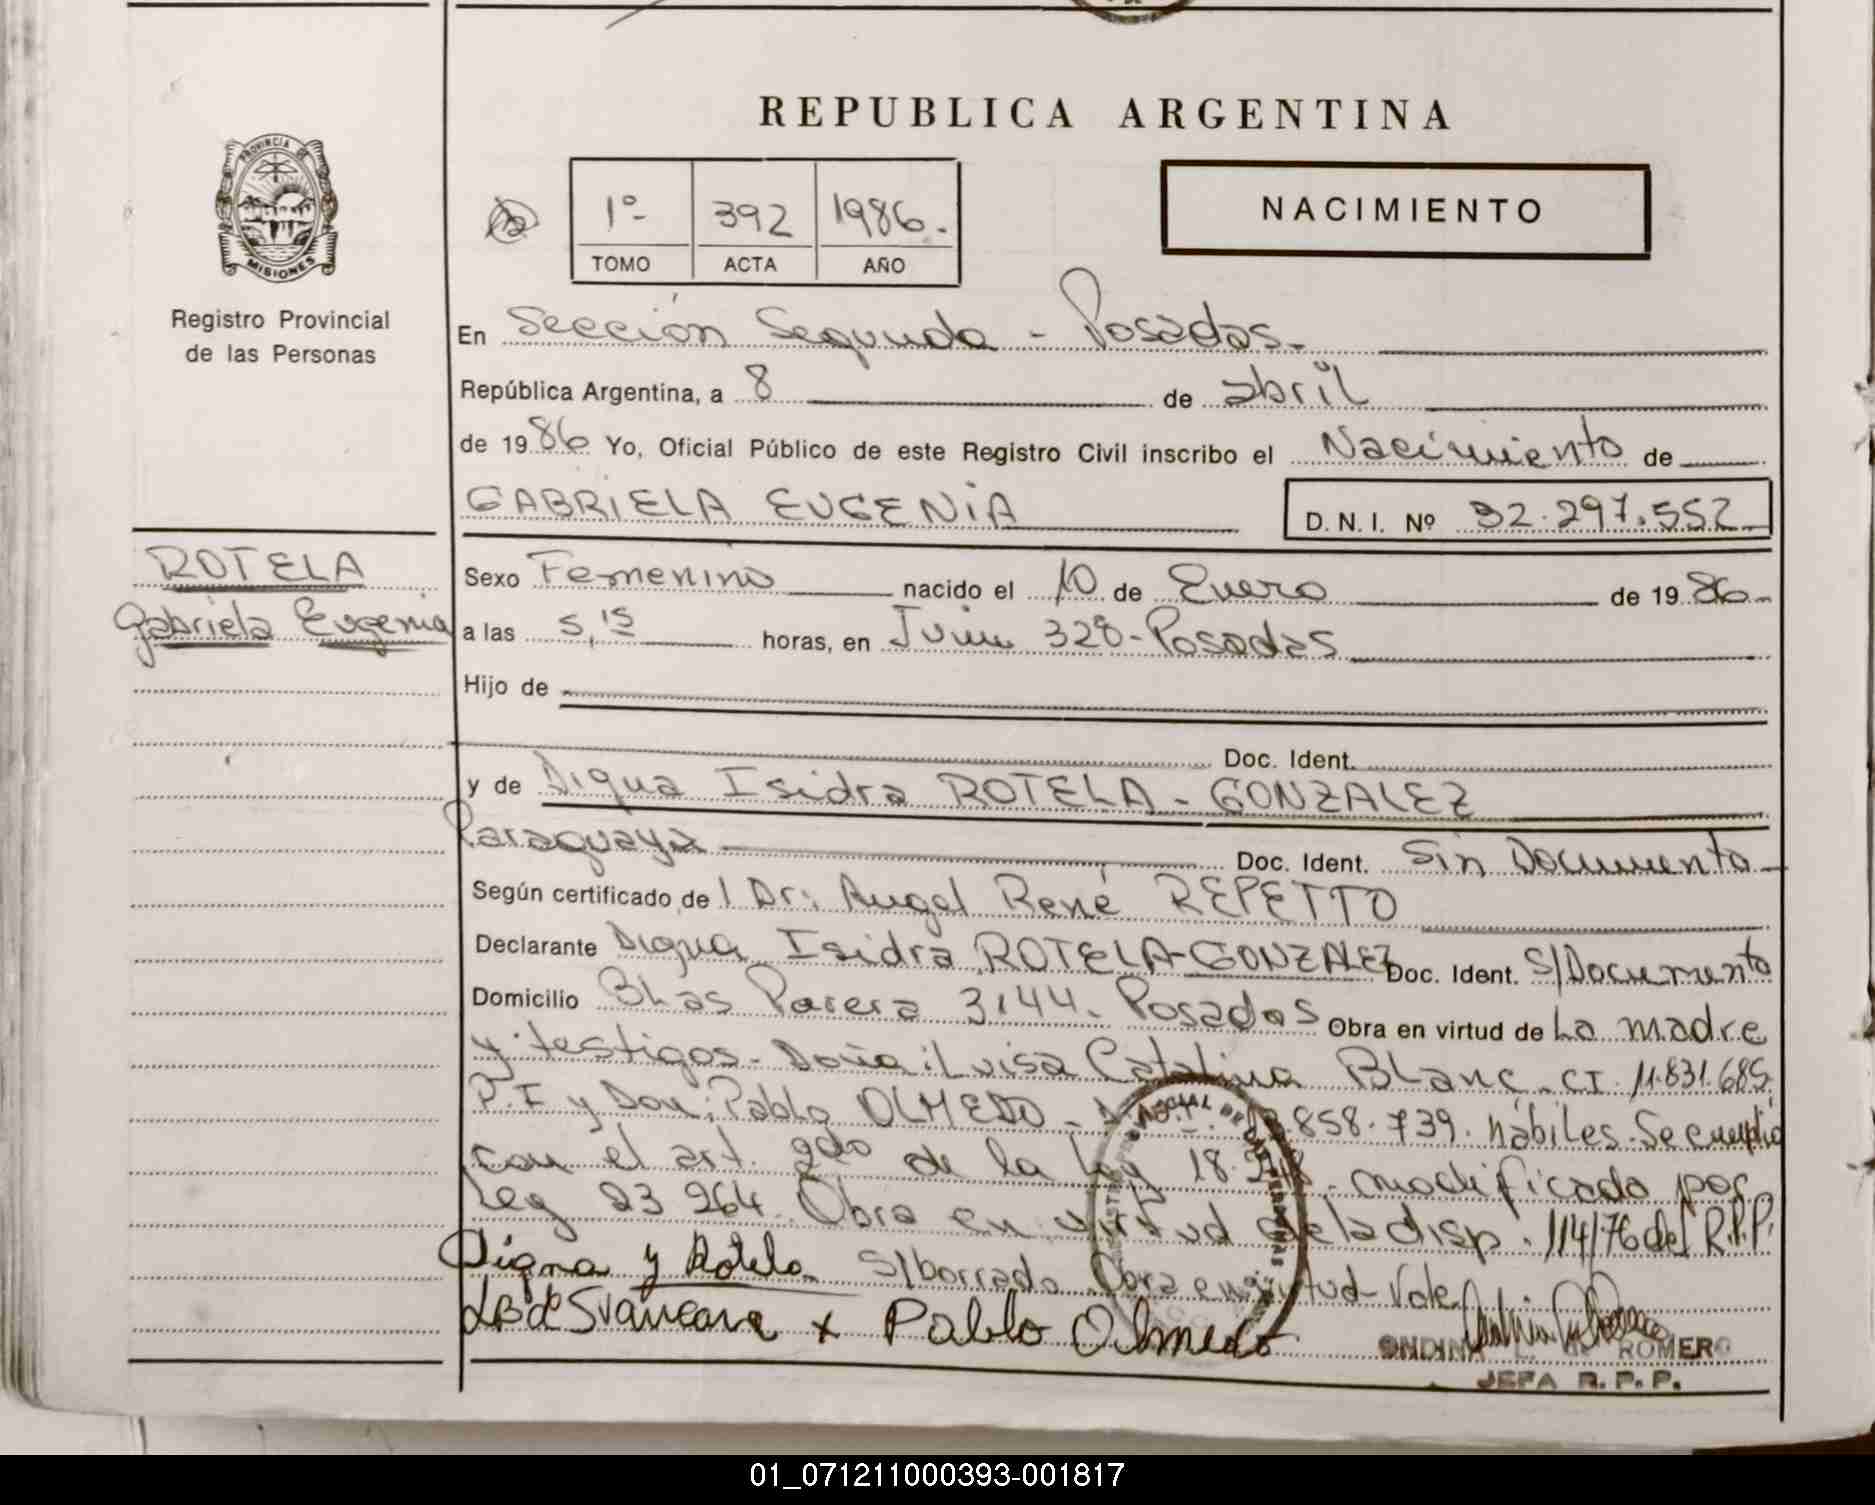 REPUBLICA ARGENTINA
PROVINCIA DE
MISIONES
Registro Provincial
de las Personas
1º 392 1986.
TOMO ACTA AÑO
NACIMIENTO
En Sección Segunda - Posadas.
República Argentina, a 8 de abril
de 1986 Yo, Oficial Público de este Registro Civil inscribo el Nacimiento de
GABRIELA EUGENIA D.N.I. Nº 32.297.552
ROTELA
Gabriela Eugenia
Sexo Femenino nacido el 10 de Enero de 1986
a las 5,15 horas, en Junin 328-Posadas
Hijo de
Doc. Ident.
y de Digna Isidra ROTELA - GONZALEZ
Paraguaya Doc. Ident. Sin Documento
Según certificado de l Dr: Angel René REPETTO
Declarante Digna Isidra ROTELA-GONZALEZ Doc. Ident. S/Documento
Domicilio Blas Parera 3144. Posadas Obra en virtud de La madre
y testigos- Doña: Luisa Catalina Blanc - CI. 11.831.685
P.F y Don: Pablo OLMEDO - .858.739. hábiles. Se cumplió
con el art. 2do de la Ley 18.248 modificado por
Ley 23 264. Obra en virtud de la disp. 114/76 del R.P.P.
Digna y Rotela S/borrado Obra en virtud - Vale
LB de Svancara x Pablo Olmedo
ROMERO
JEFA R.P.P.
01_071211000393-001817